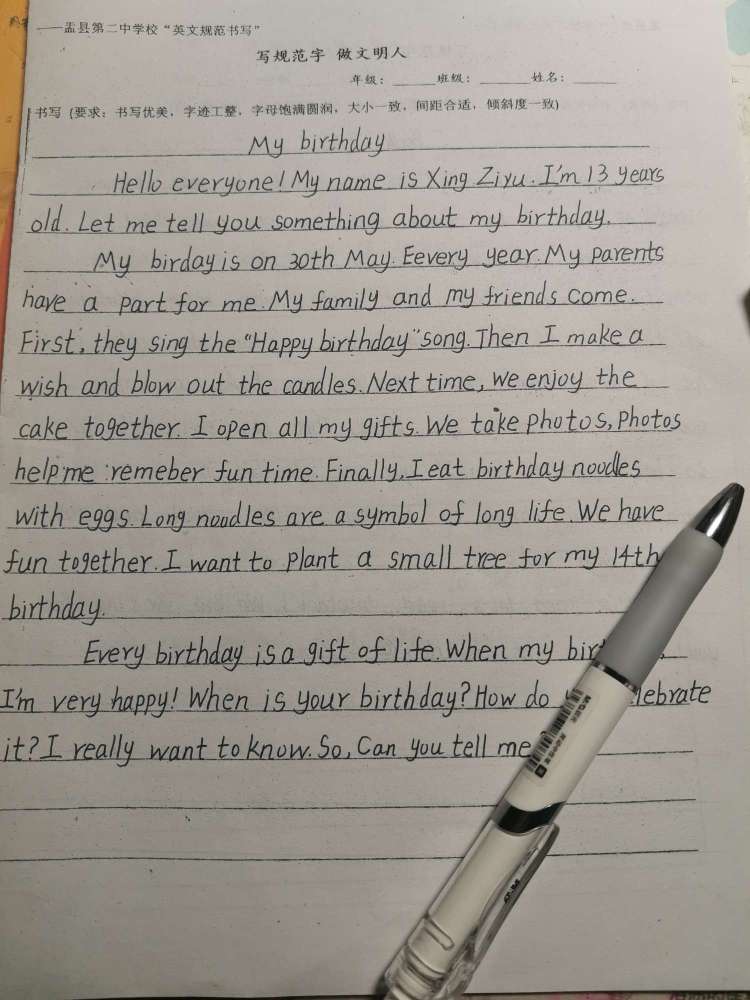 ——盂县第二中学校“英文规范书写”
写规范字 做文明人
年级：______班级：______ 姓名：______
书写 (要求：书写优美，字迹工整，字母饱满圆润，大小一致，间距合适，倾斜度一致)
My birthday
Hello everyone! My name is Xing Ziyu. I'm 13 years
old. Let me tell you something about my birthday.
My birday is on 30th May. Eevery year. My parents
have a part for me. My family and my friends come.
First, they sing the "Happy birthday" song. Then I make a
wish and blow out the candles. Next time, we enjoy the
cake together. I open all my gifts. We take photos, Photos
help me remeber fun time. Finally, I eat birthday noodles
with eggs. Long noodles are a symbol of long life. We have
fun together. I want to plant a small tree for my 14th
birthday.
Every birthday is a gift of life. When my
I'm very happy! When is your birthday? How do lebrate
it? I really want to know. So, Can you tell me
M&G